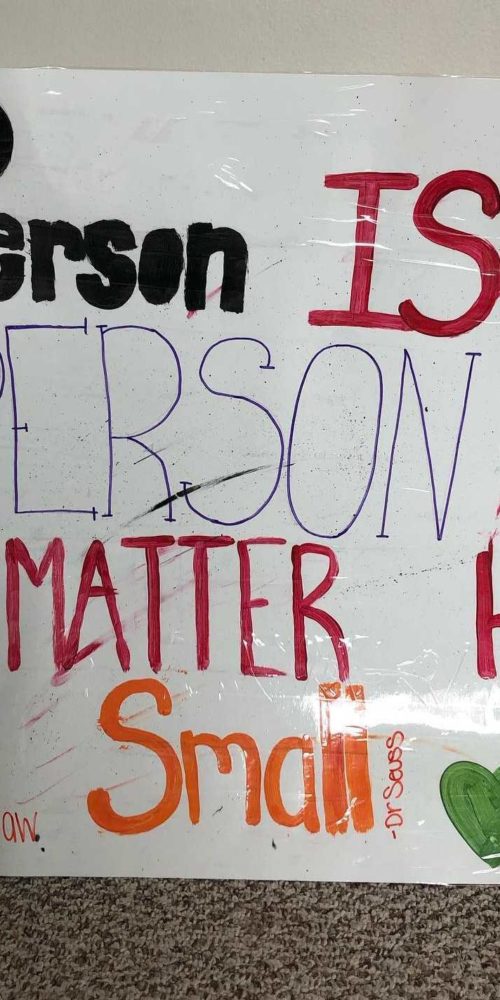 erson IS
PERSON
MATTER H
Small
-Dr Seuss
aw.